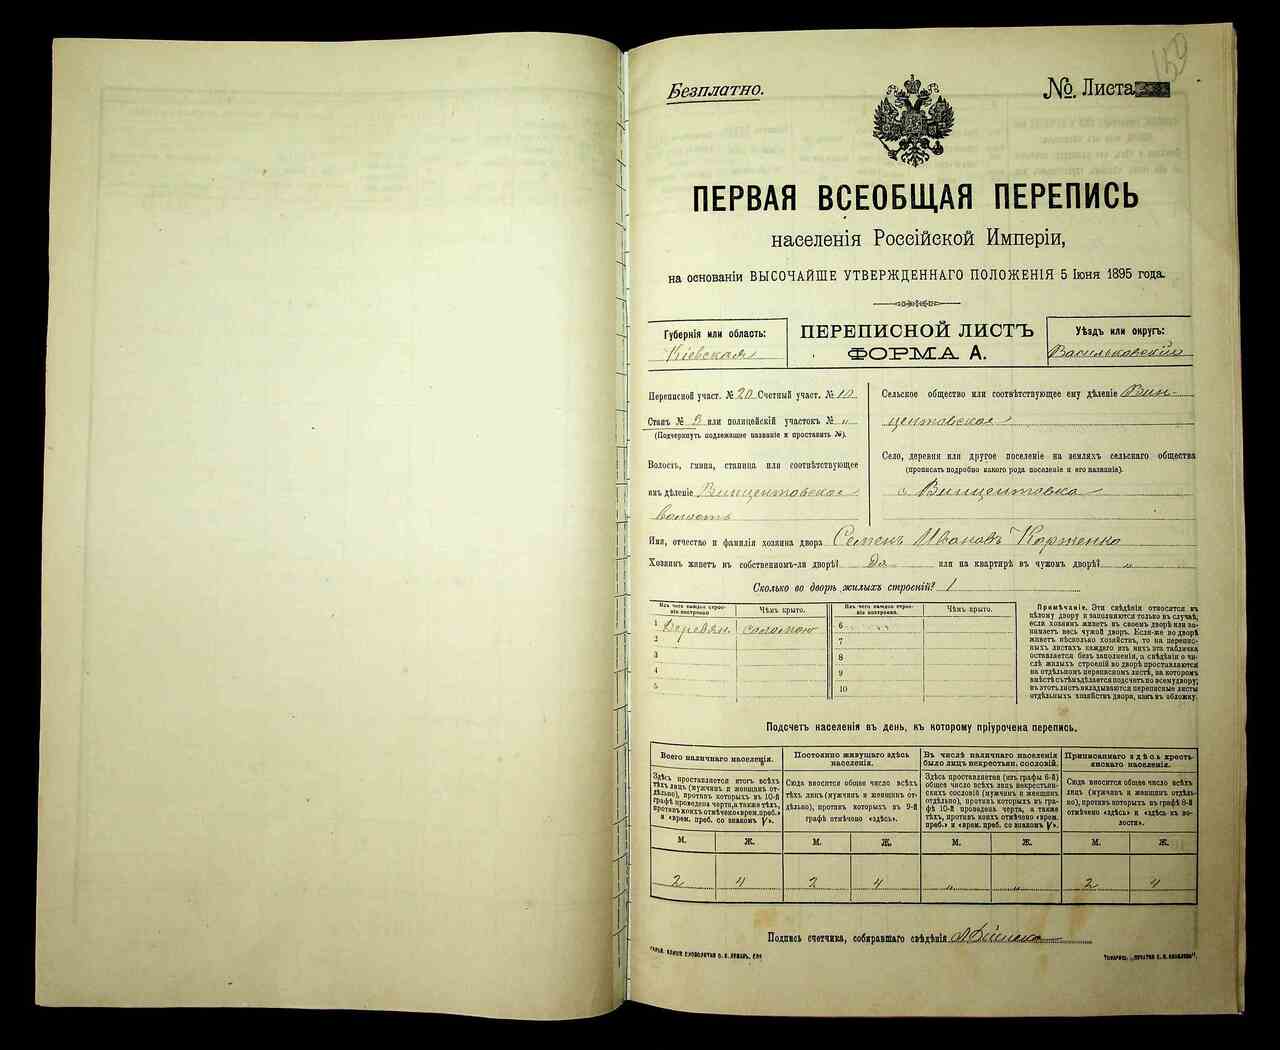 150
Безплатно.
№ Листа
ПЕРВАЯ ВСЕОБЩАЯ ПЕРЕПИСЬ
населенія Россійской Имперіи,
на основаніи ВЫСОЧАЙШЕ УТВЕРЖДЕННАГО ПОЛОЖЕНІЯ 5 Іюня 1895 года.
Губернія или область:
Кіевская
ПЕРЕПИСНОЙ ЛИСТЪ
ФОРМА А.
Уѣздъ или округъ:
Васильковскій
Переписной участ. № 20 Счетный участ. № 10
Станъ № 3 или полицейскій участокъ № „
(Подчеркнуть подлежащее названіе и проставить №).
Волость, гмина, станица или соотвѣтствующее
имъ дѣленіе Винцентовская
волость
Сельское общество или соотвѣтствующее ему дѣленіе Вин-
центовская
Село, деревня или другое поселеніе на земляхъ сельскаго общества
(прописать подробно какого рода поселеніе и его названіе).
с. Винцентовка
Имя, отчество и фамилія хозяина двора Семенъ Ивановъ
Хозяинъ живетъ въ собственномъ-ли дворѣ? Да или на квартирѣ въ чужомъ дворѣ? „
Сколько во дворѣ жилыхъ строеній? 1
Изъ чего каждое строе-
ніе построено
Чѣмъ крыто.
Изъ чего каждое строе-
ніе построено.
Чѣмъ крыто.
1 Деревян. соломою
2
3
4
5
6
7
8
9
10
Примѣчаніе. Эти свѣдѣнія относятся къ
цѣлому двору и заполняются только въ случаѣ,
если хозяинъ живетъ въ своемъ дворѣ или за-
нимаетъ весь чужой дворъ. Если-же во дворѣ
живетъ нѣсколько хозяйствъ, то на перепис-
ныхъ листахъ каждаго изъ нихъ эта табличка
оставляется безъ заполненія, а свѣдѣнія о чи-
слѣ жилыхъ строеній во дворѣ проставляются
на отдѣльномъ переписномъ листѣ, на которомъ
вмѣстѣ съ тѣмъ дѣлается подсчетъ по всему двору;
въ этотъ листъ вкладываются переписные листы
отдѣльныхъ хозяйствъ двора, какъ въ обложку.
Подсчетъ населенія въ день, къ которому пріурочена перепись.
Всего наличнаго населенія.
Здѣсь проставляется итогъ всѣхъ
тѣхъ лицъ (мужчинъ и женщинъ от-
дѣльно), противъ которыхъ въ 10-й
графѣ проведена черта, а также тѣхъ,
противъ коихъ отмѣчено «врем. преб.»
и «врем. преб. со знакомъ V».
Постоянно живущаго здѣсь
населенія.
Сюда вносится общее число всѣхъ
тѣхъ лицъ (мужчинъ и женщинъ от-
дѣльно), противъ которыхъ въ 9-й
графѣ отмѣчено «здѣсь».
Въ числѣ наличнаго населенія
было лицъ некрестьян. сословій.
Здѣсь проставляется (изъ графы 6-й)
общее число всѣхъ лицъ некрестьян-
скихъ сословій (мужчинъ и женщинъ
отдѣльно), противъ которыхъ въ гра-
фѣ 10-й проведена черта, а также
тѣхъ, противъ коихъ отмѣчено «врем.
преб.» и «врем. преб. со знакомъ V».
Приписаннаго здѣсь кресть-
янскаго населенія.
Сюда вносится общее число всѣхъ
лицъ (мужчинъ и женщинъ отдѣль-
но), противъ которыхъ въ графѣ 8-й
отмѣчено «здѣсь» и «здѣсь въ во-
лости».
М. Ж. М. Ж. М. Ж. М. Ж.
2 4 2 4 „ „ 2 4
Подпись счетчика, собиравшаго свѣдѣнія